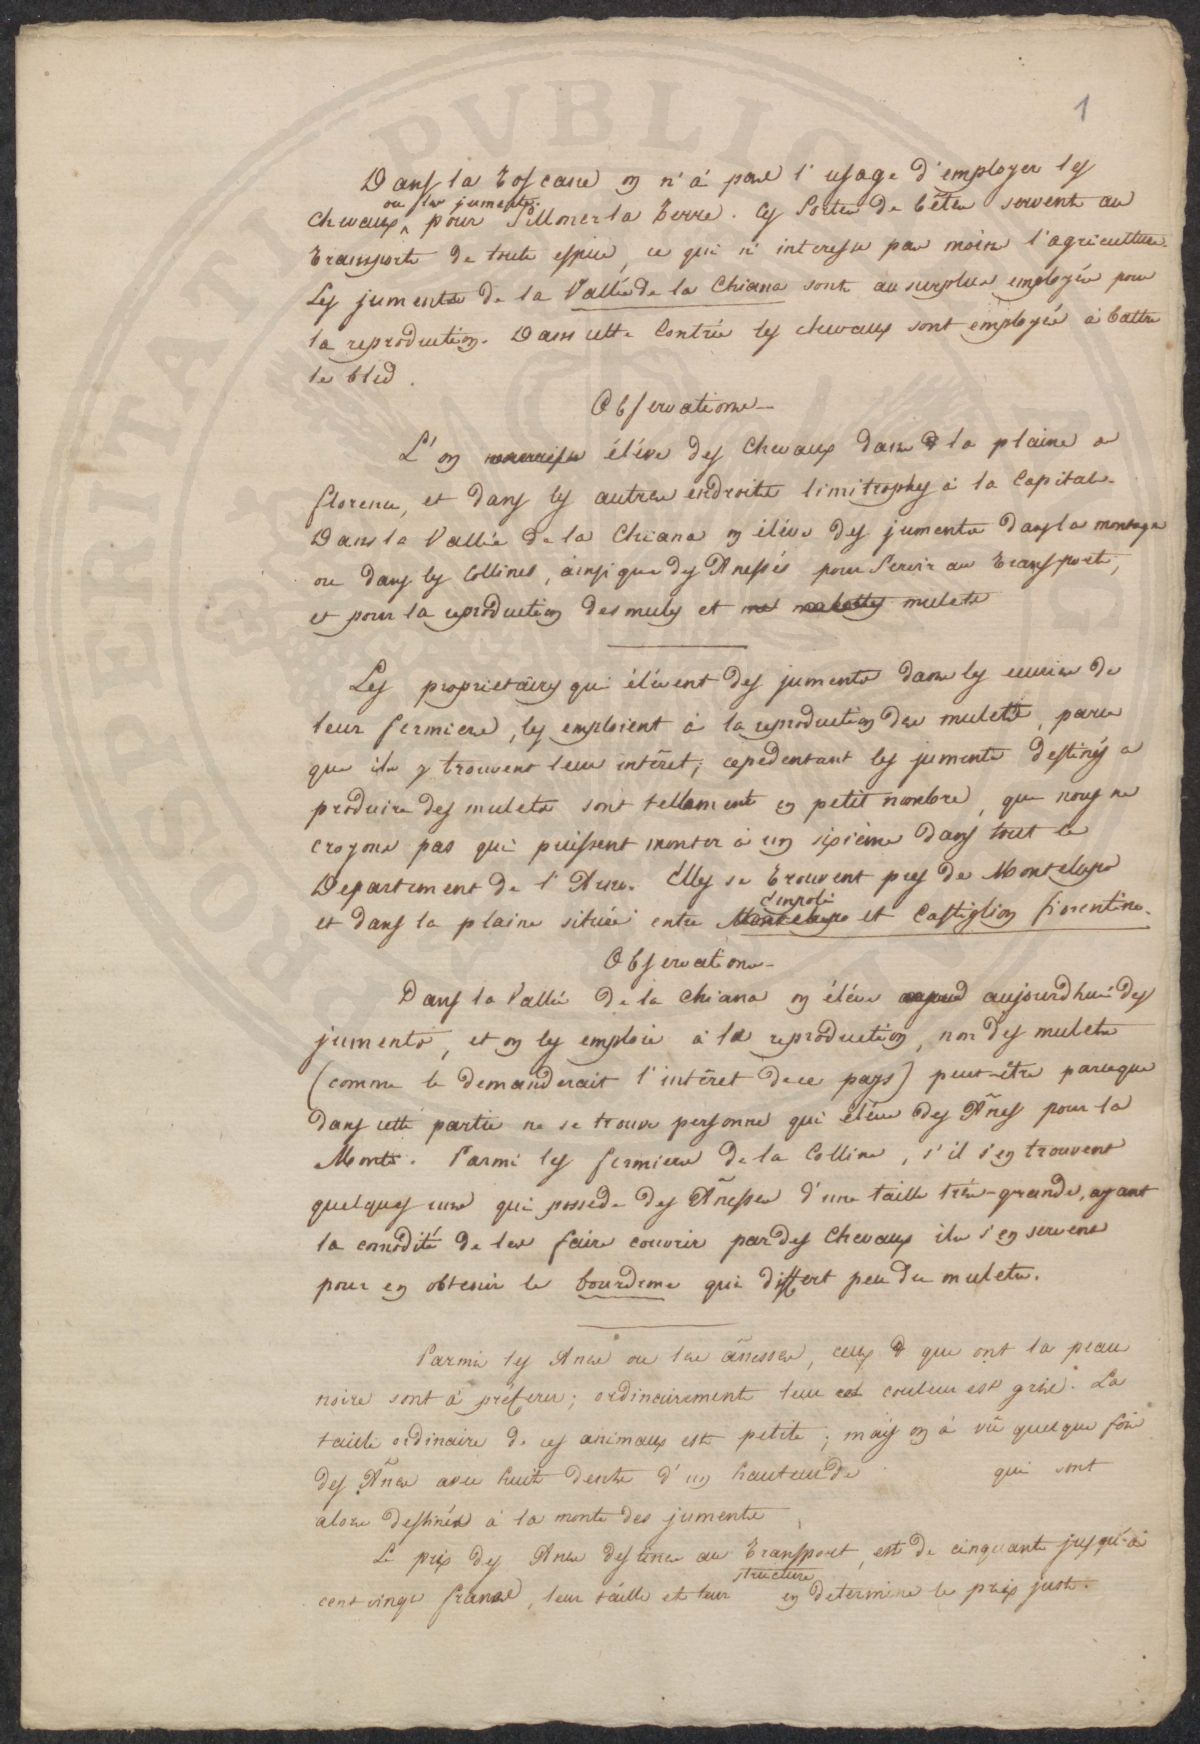 1
Dans la Toscane on n'à pas l'usage d'employer les
ou les juments
chevaux pour sillonner la Terre. Ces sortes de bêtes servent au
transports de toute espèce, ce qui n'interesse pas moins l'agriculture.
Les juments de la Vallée de la Chiana sont au surplus employés pour
la reproduction. Dans cette Contrée les chevaux sont employés à battre
le bled.
Observations
L'on élève des Chevaux dans la plaine a
florence, et dans les autres endroits limitrophes à la Capitale.
Dans la Vallée de la Chiana on élève des juments dans la montagne
ou dans les Collines, ainsi que des Anesses pour servir au transports,
et pour la reproduction des mules et mulets
Les proprietaires qui élèvent des juments dans les ecuries de
leur fermiers, les emploient à la reproduction des mulets, parce
que ils y trouvent leur intérêt; cepedentant les juments destinés a
produire des mulets sont tellement en petit nombre, que nous ne
croyons pas qui puissent monter à un sixième dans tout le
Departement de l'Arno. Elles se trouvent pres de Montelupo
d'empoli
et dans la plaine située entre Montelupo et Castiglion fiorentino.
Observations
Dans la Vallée de la Chiana on élève aujourdhui des
juments, et on les emploie à la reproduction, non des mulets
(comme le demanderait l'intérêt de ce pays) peut-être parceque
dans cette partie ne se trouve personne qui élève des Ânes pour la
Monte. Parmi les fermiers de la Colline, s'il s'en trouvent
quelques uns qui possede des Ânesses d'une taille très-grande, ayant
la comodité de les faire couvrir par des Chevaux ils s'en servent
pour en obtenir le bourdeme qui differt peu du mulets.
Parmi les Anes ou les ânesses, ceux que ont la peau
noire sont à préferer; ordinairement leur couleur est grise. La
taille ordinaire de ces animaux est petite; mais on à vû quelque fois
des Ânes avec huit dents d'un hauteur de qui sont
alors destinés à la monte des juments
Le prix des Anes destinés au Transport, est de cinquante jusqu'à
structure
cent vingt francs, leur taille et leur en determine le prix juste.